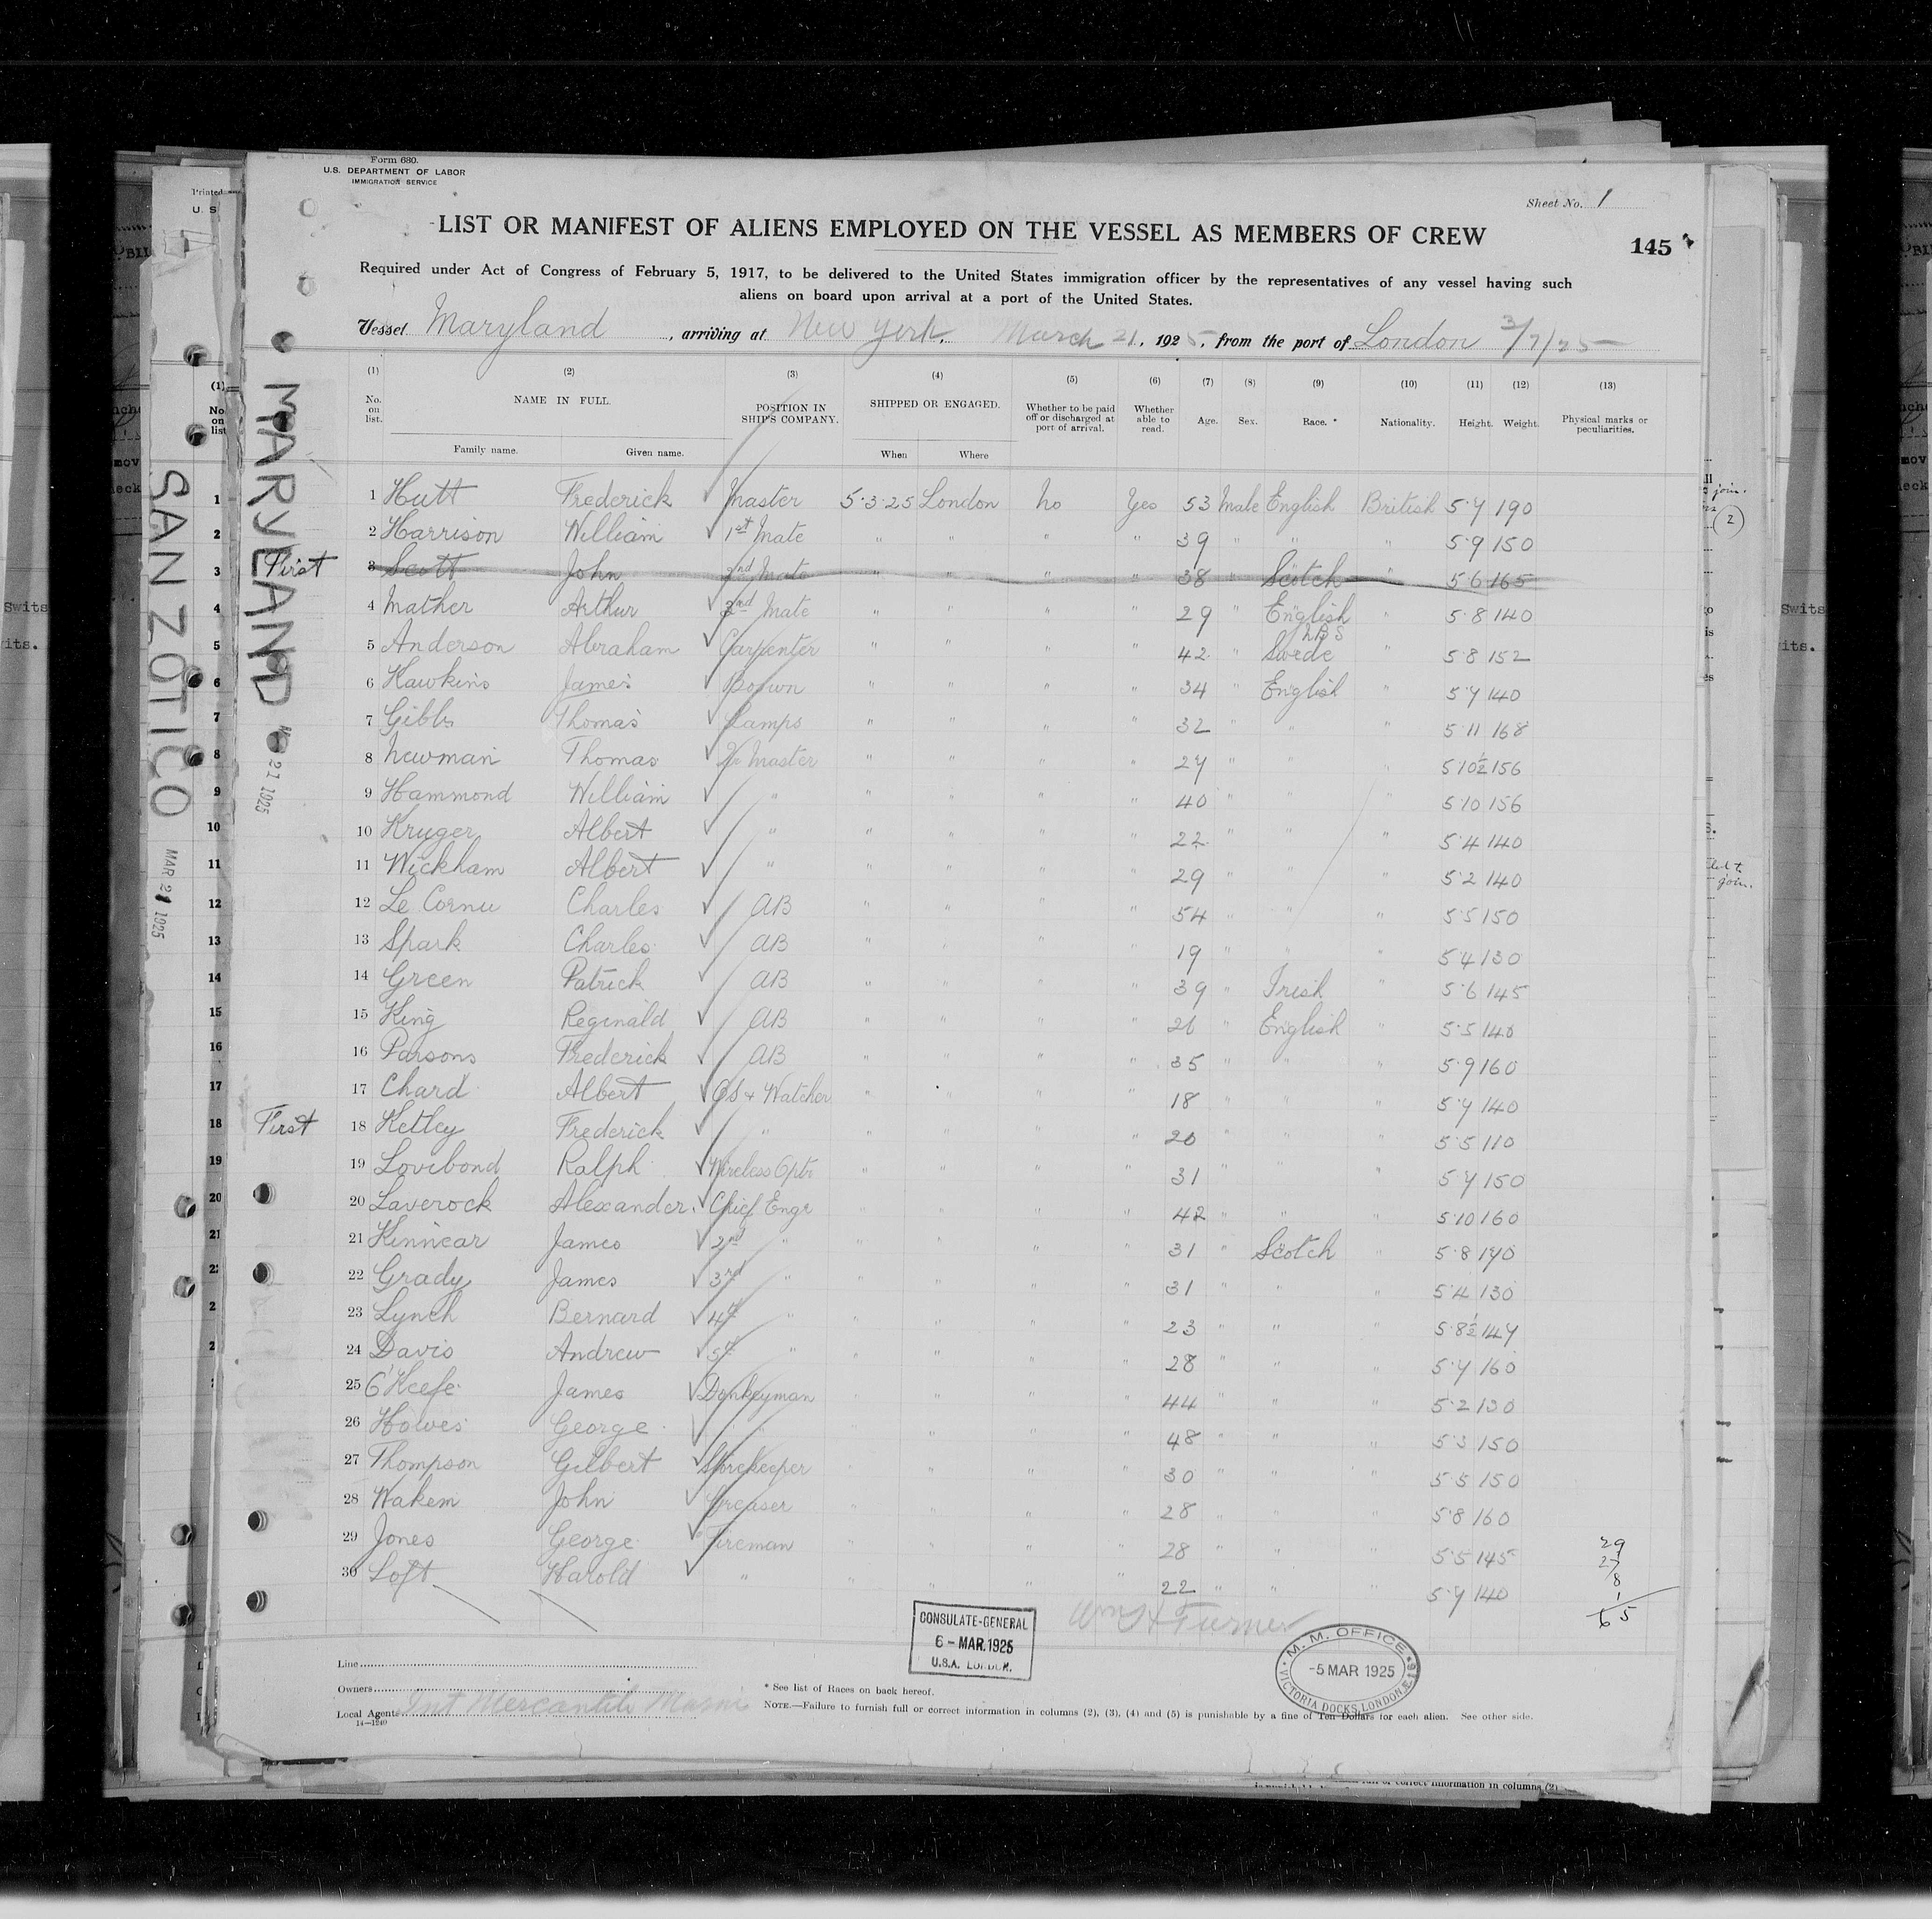 Form 680.
U.S. DEPARTMENT OF LABOR
IMMIGRATION SERVICE
Sheet No. 1
LIST OR MANIFEST OF ALIENS EMPLOYED ON THE VESSEL AS MEMBERS OF CREW
145
Required under Act of Congress of February 5, 1917, to be delivered to the United States immigration officer by the representatives of any vessel having such
aliens on board upon arrival at a port of the United States.
Vessel Maryland, arriving at New York, March 21, 1925, from the port of London 3/7/25
(1) (2) (3) (4) (5) (6) (7) (8) (9) (10) (11) (12) (13)
No. on list. NAME IN FULL. POSITION IN SHIP'S COMPANY. SHIPPED OR ENGAGED. Whether to be paid off or discharged at port of arrival. Whether able to read. Age. Sex. Race. * Nationality. Height. Weight. Physical marks or peculiarities.
Family name. Given name. When Where
1 Hutt Frederick Master 5·3·25 London No Yes 53 Male English British 5·7 190
2 Harrison William 1st Mate " " " " 39 " " " 5·9 150
First 3 Scott John 2nd Mate " " " " 38 " Scotch " 5·6 165
4 Mather Arthur 3rd Mate " " " " 29 " English " 5·8 140
5 Anderson Abraham Carpenter " " " " 42 " Swede " 5·8 152
6 Hawkins James Bo'swn " " " " 34 " English " 5·7 140
7 Gibbs Thomas Lamps " " " " 32 " " " 5·11 168
8 Newman Thomas Qr Master " " " " 27 " " " 5·10½ 156
9 Hammond William " " " " " 40 " " " 5·10 156
10 Kruger Albert " " " " " 22 " " " 5·4 140
11 Wickham Albert " " " " " 29 " " " 5·2 140
12 Le Cornu Charles AB " " " " 54 " " " 5·5 150
13 Spark Charles AB " " " " 19 " " " 5·4 130
14 Green Patrick AB " " " " 39 " Irish " 5·6 145
15 King Reginald AB " " " " 26 " English " 5·5 140
16 Parsons Frederick AB " " " " 35 " " " 5·9 160
17 Chard Albert OS & Watcher " " " " 18 " " " 5·7 140
First 18 Ketley Frederick " " " " " 20 " " " 5·5 110
19 Lovibond Ralph Wireless Optr " " " " 31 " " " 5·7 150
20 Laverock Alexander Chief Engr " " " " 42 " " " 5·10 160
21 Kinnear James 2nd " " " " " 31 " Scotch " 5·8 170
22 Grady James 3rd " " " " " 31 " " " 5·4 130
23 Lynch Bernard 4th " " " " " 23 " " " 5·8½ 147
24 Davis Andrew 5th " " " " " 28 " " " 5·7 160
25 O'Keefe James Donkeyman " " " " 44 " " " 5·2 130
26 Howes George " " " " 48 " " " 5·3 150
27 Thompson Gilbert Storekeeper " " " " 30 " " " 5·5 150
28 Wakem John Greaser " " " " 28 " " " 5·8 160
29 Jones George Fireman " " " " 28 " " " 5·5 145
30 Loft Harold " " " " " 22 " " " 5·7 140
29
27
8
1
65
Wm H Turner
CONSULATE-GENERAL
6 - MAR. 1925
U.S.A. LONDON.
M. M. OFFICE
-5 MAR 1925
VICTORIA DOCKS, LONDON
Line
Owners
Local Agents Int Mercantile Marine
14—1240
* See list of Races on back hereof.
NOTE.—Failure to furnish full or correct information in columns (2), (3), (4) and (5) is punishable by a fine of Ten Dollars for each alien. See other side.
MARYLAND
21 1925
SAN ZOTICO
MAR 21 1925